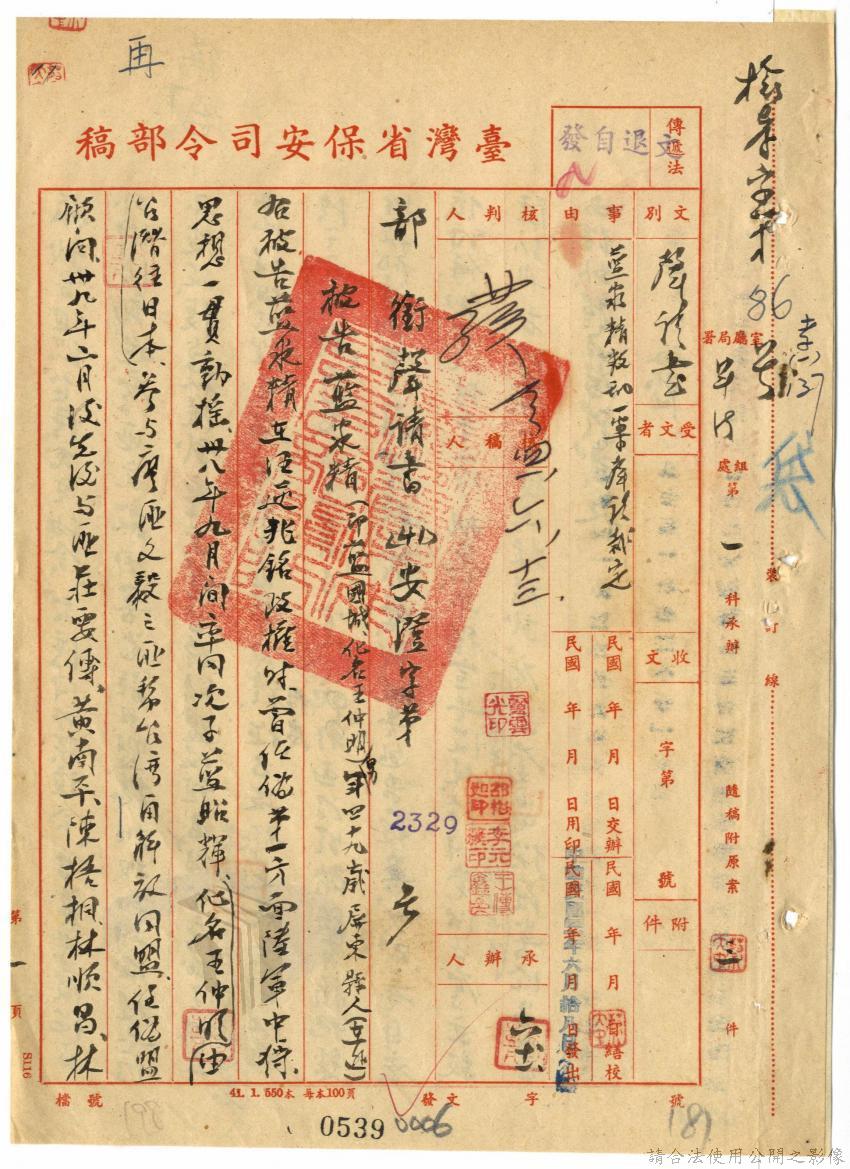 再
臺灣省保安司令部稿
傳遞法
退文自發
檢呈
86
室廳局署
組處
第一科承辦
隨稿附原案
三
件
裝訂線
文別
聲請書
受文者
收文
字第
號
附件
事由
藍家精叛亂一案
裁定
民國 年 月 日交辦
民國 年 月 日繕校
民國 年 月 日用印
民國 年 月 日發出
核判人
核稿人
四、六、十三
承辦人
部銜聲請書(41)安澄字第2329號
被告藍家精(即藍國城、化名王仲明)男年四十九歲屏東縣人(在逃)
右被告藍家精在汪逆兆銘政權時曾任偽第一方面陸軍中將
思想一貫動搖卅八年九月間率同次子藍昭輝(化名王仲明)由
台潛往日本參與廖匪文毅之匪幫台灣再解放同盟任偽盟
顧問卅九年二月後先後與匪莊要傳、黃南平、陳梧桐、林順昌、林
第一頁
S116
檔號
41. 1. 550本 每本100頁
發文
字
號
0539
0006
181
請合法使用公開之影像